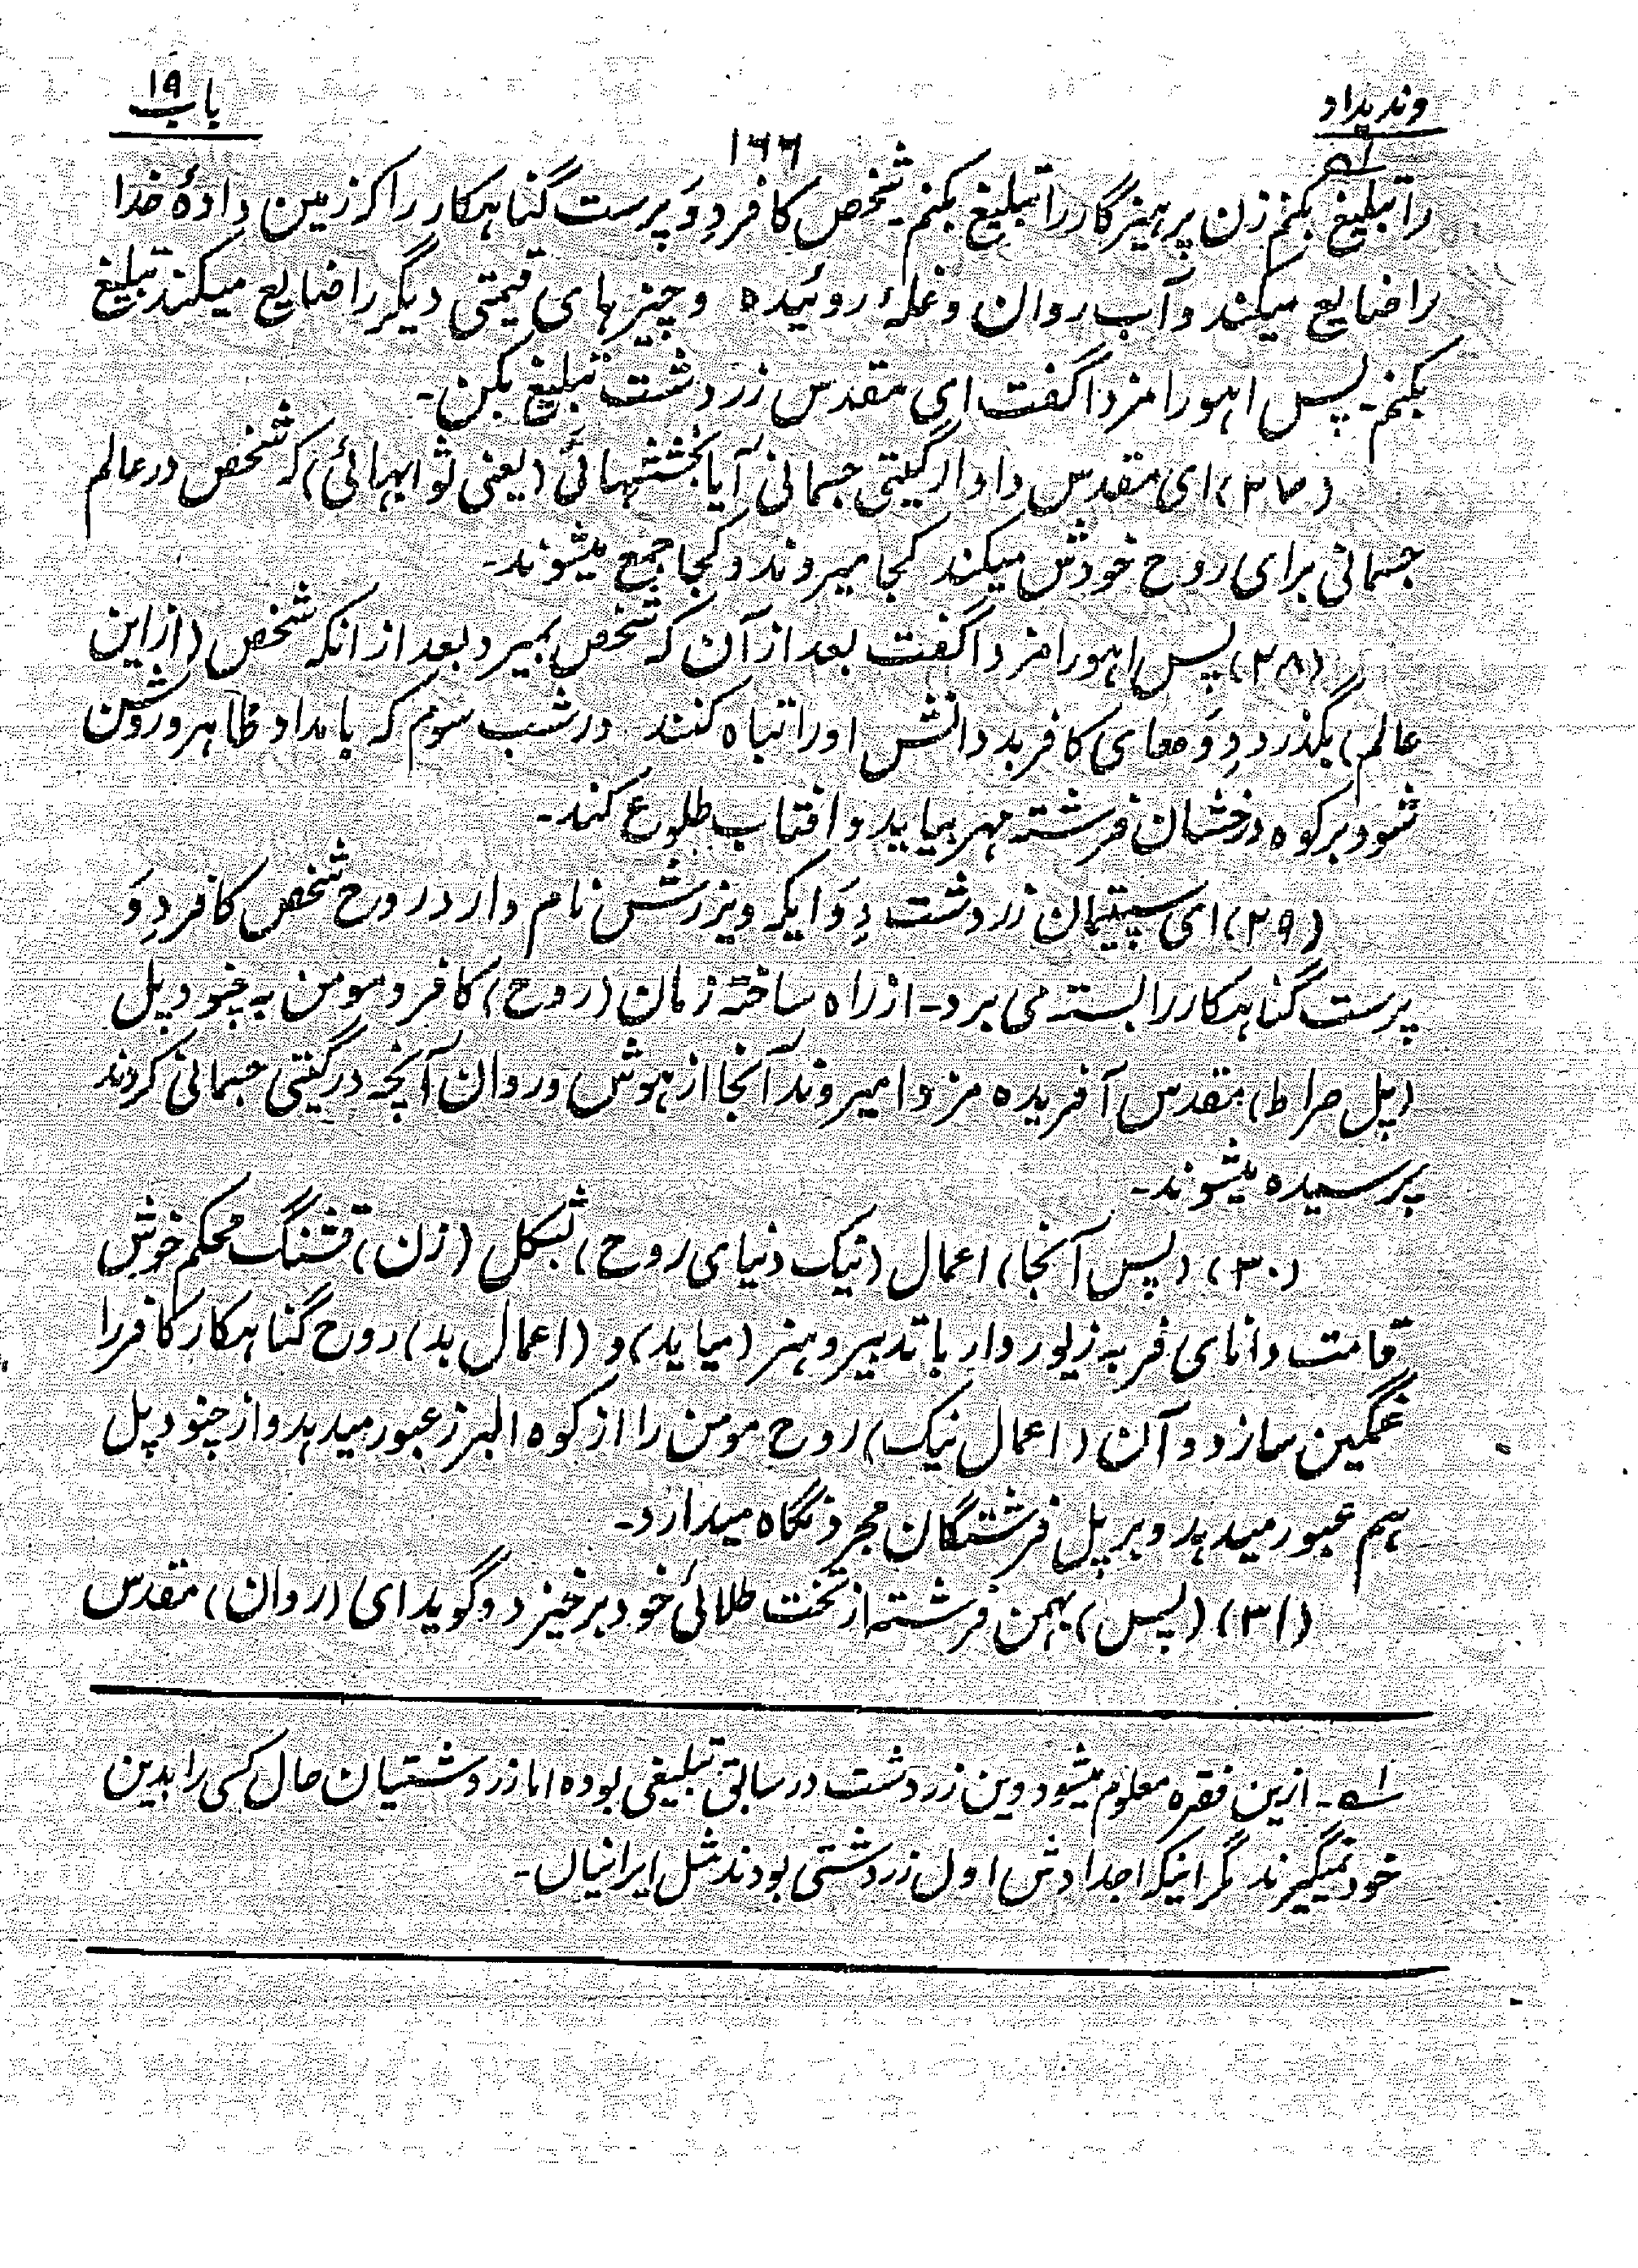 وندیداد
باب ۱۹
۱۶۶
را تبلیغ بکنم زن پرهیزگار را تبلیغ بکنم۔ شخص کافر دِوَ پرست گناهکار را که زمین دادهٔ خدا
را ضایع میکند و آب روان و غلهٔ روئیده و چیزهای قیمتی دیگر را ضایع میکند تبلیغ
بکنم۔ پس اهورا مزدا گفت ای مقدس زردشت تبلیغ بکن۔
(۲۷) ای مقدس دادار گیتی جسمانی آیا بخششهائی (یعنی ثوابهائی) که شخص در عالم
جسمانی برای روح خودش میکند کجا میروند و کجا جمع میشوند۔
(۲۸) پس اهورا مزدا گفت بعد از آن که شخص بمیرد بعد از انکه شخص (از این
عالم) بگذرد دِوَهای کافر بد دانش او را تباه کنند در شب سوم که بامداد ظاهر و روشن
شود بر کوه درخشان فرشته مهر بیاید و افتاب طلوع کند۔
(۲۹) ای سپیتمان زردشت دِوَایکه ویزرش نام دارد روح شخص کافر دِوَ
پرست گناهکار را بسته می برد۔ از راه ساخته زمان (روح) کافر و مومن به چنود پل
(پل صراط) مقدس آفریده مزدا میروند آنجا از هوش و روان آنچه در گیتی جسمانی کردند
پرسیده میشوند۔
(۳۰) (پس آنجا) اعمال (نیک دنیای روح) بشکل (زن) قشنگ محکم خوش
قامت دانای فربه زیور دار با تدبیر و هنر (میاید) و (اعمال بد) روح گناهکار کافر را
غمگین سازد و آن (اعمال نیک) روح مومن را از کوه البرز عبور میدهد و از چنود پل
هم عبور میدهد و بر پل فرشتگان مجرد نگاه میدارد۔
(۳۱) (پس) بهمن فرشته از تخت طلائی خود برخیزد و گوید ای (روان) مقدس
۵۱۔ ازین فقره معلوم میشود دین زردشت در سابق تبلیغی بوده اما زردشتیان حال کسی را بدین
خود نمیگیرند مگر اینکه اجدادش اول زردشتی بودند مثل ایرانیان۔